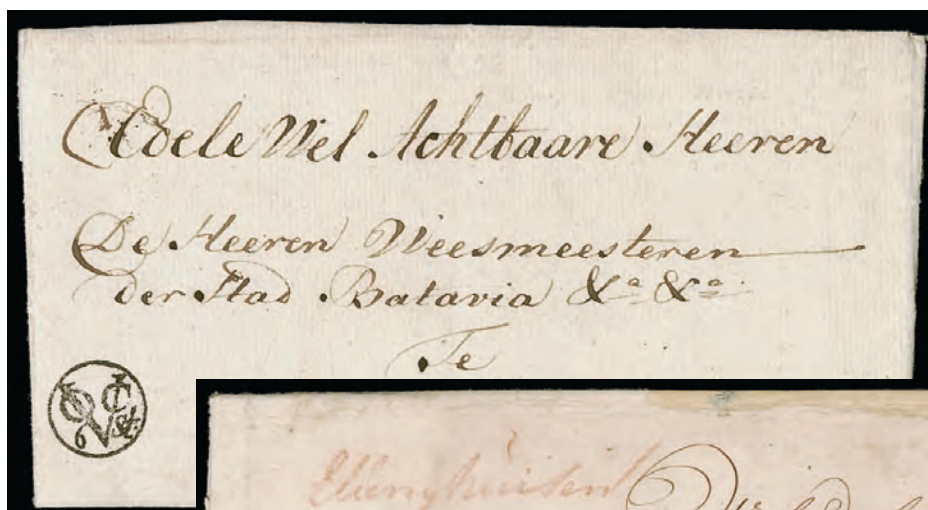 Edele Wel Achtbaare Heeren
De Heeren Weesmeesteren
der Stad Batavia &a &a
Te
VOC
6 St: